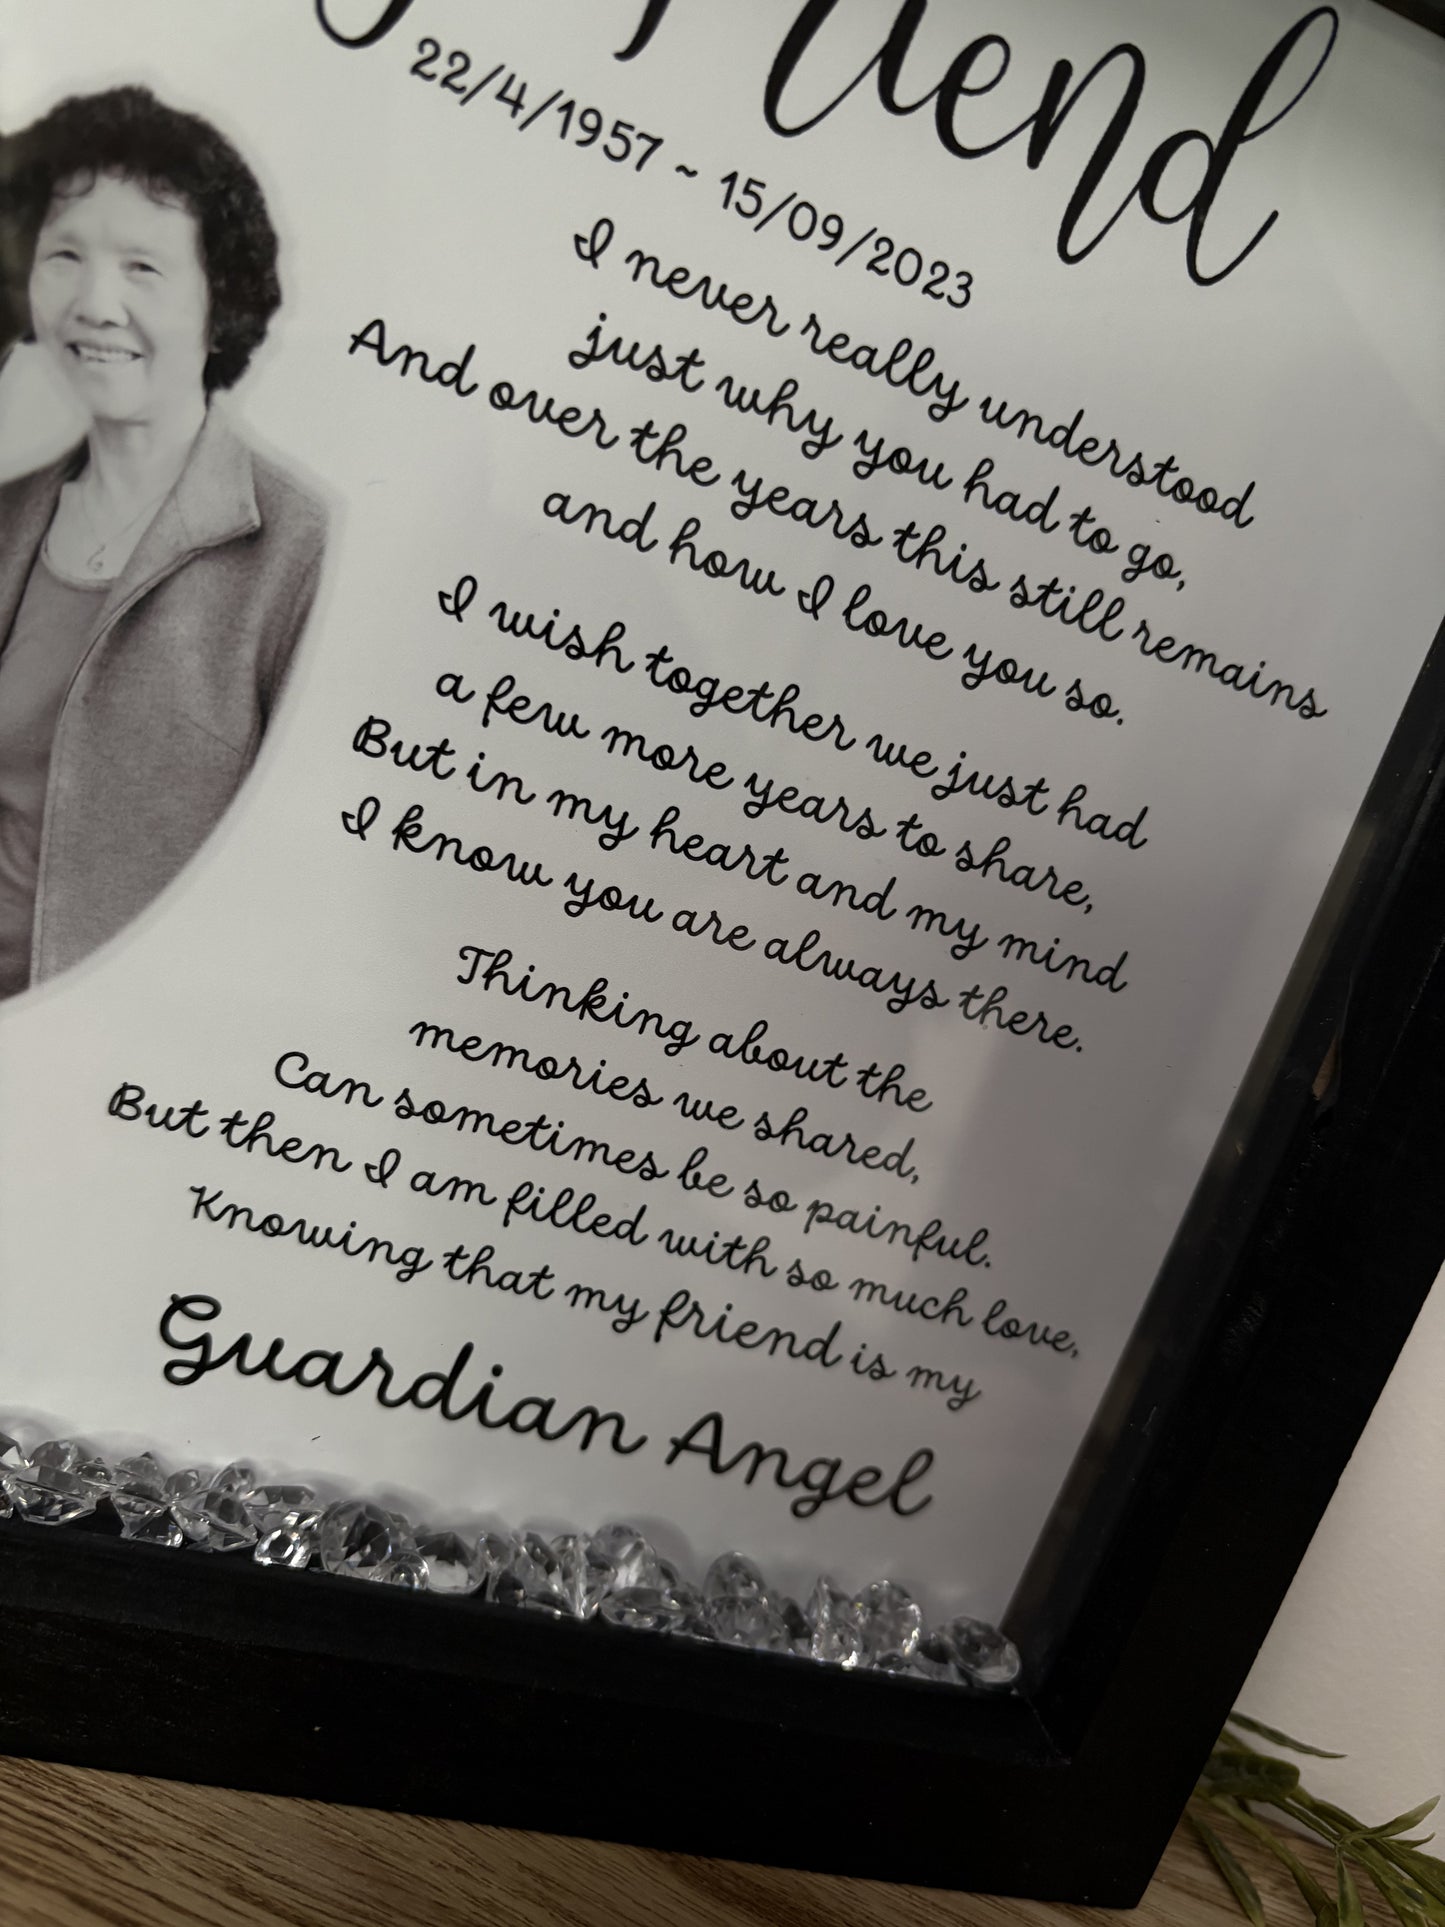 Friend
22/4/1957 ~ 15/09/2023
I never really understood
just why you had to go,
And over the years this still remains
and how I love you so.
I wish together we just had
a few more years to share,
But in my heart and my mind
I know you are always there.
Thinking about the
memories we shared,
Can sometimes be so painful.
But then I am filled with so much love,
Knowing that my friend is my
Guardian Angel